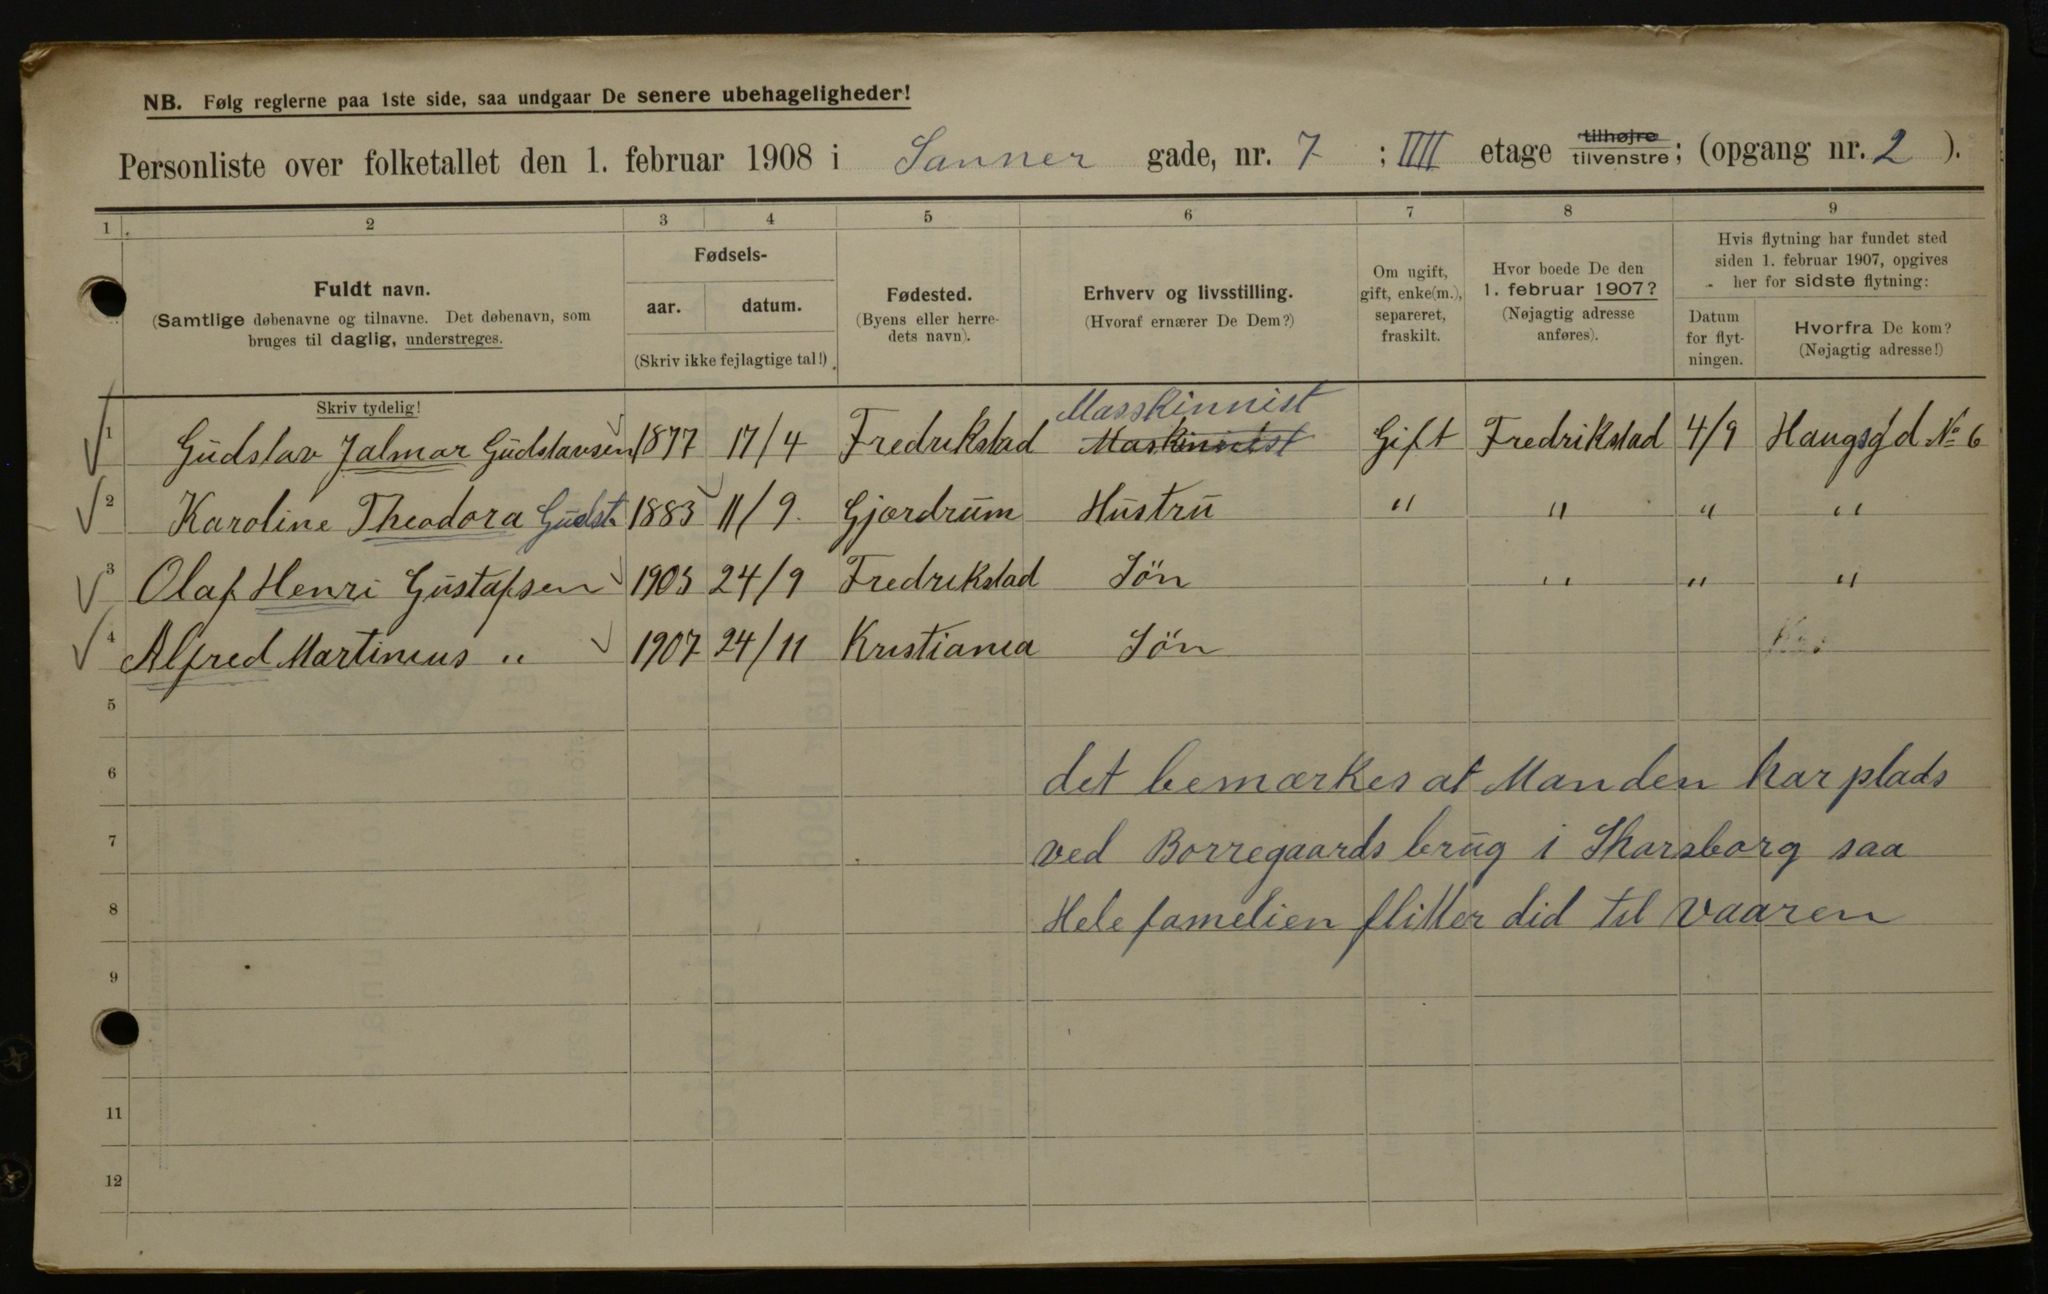 NB. Følg reglerne paa 1ste side, saa undgaar De senere ubehageligheder!
Personliste over folketallet den 1. februar 1908 i Sanner gade, nr. 7 ; IIII etage tilhøjre tilvenstre; (opgang nr. 2 ).
1 2 3 4 5 6 7 8 9
Fuldt navn.
(Samtlige døbenavne og tilnavne. Det døbenavn, som
bruges til daglig, understreges.
Skriv tydelig!
Fødsels-
aar. datum.
(Skriv ikke fejlagtige tal!)
Fødested.
(Byens eller herre-
dets navn).
Erhverv og livsstilling.
(Hvoraf ernærer De Dem?)
Om ugift,
gift, enke(m.),
separeret,
fraskilt.
Hvor boede De den
1. februar 1907?
(Nøjagtig adresse
anføres).
Hvis flytning har fundet sted
siden 1. februar 1907, opgives
her for sidste flytning:
Datum
for flyt-
ningen.
Hvorfra De kom?
(Nøjagtig adresse!)
Masskinnist
1 Gudslav Jalmar Gudslavsen 1877 17/4 Fredrikstad Maskinnist Gift Fredrikstad 4/9 Haugsgd No 6
2 Karoline Theodora Gudst. 1883 11/9. Gjærdrum Hustru " " " "
3 Olaf Henri Gustafsen 1903 24/9 Fredrikstad Søn " " "
4 Alfred Martinius " 1907 24/11 Kristiania Søn
5
6 det bemærkes at Manden har plads
7 ved Borregaards brug i Skarsborg saa
8 Hele famelien flitter did til Vaaren
9
11
12